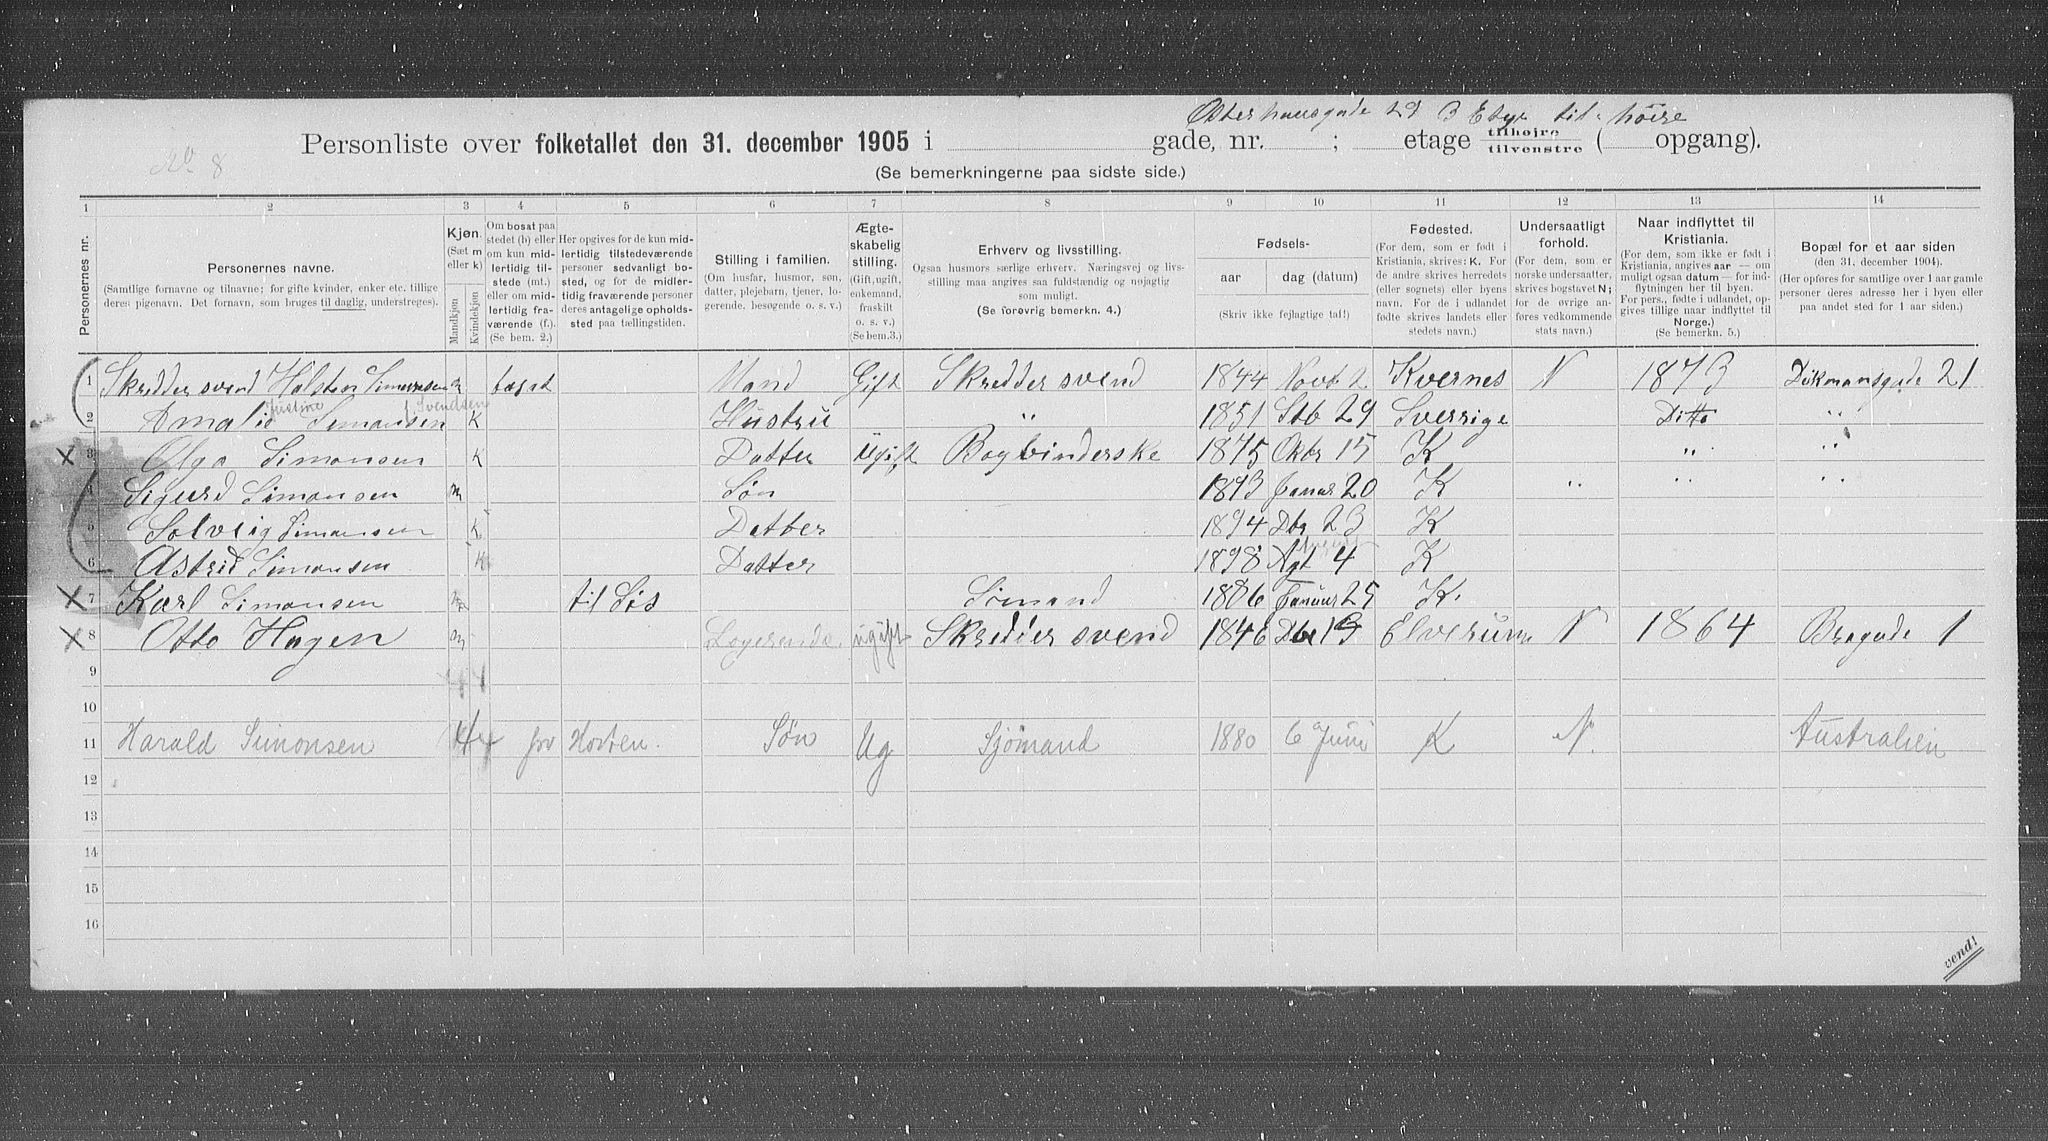 Østerhausgade 29 3 Etage til høire
No 8
Personliste over folketallet den 31. december 1905 i gade, nr. ; etage tilhøjre tilvenstre ( opgang).
(Se bemerkningerne paa sidste side.)
1 2 3 4 5 6 7 8 9 10 11 12 13 14
Personernes nr.
Personernes navne.
(Samtlige fornavne og tilnavne; for gifte kvinder, enker etc. tillige
deres pigenavn. Det fornavn, som bruges til daglig, understreges).
Kjøn.
(Sæt m
eller k)
Mandkjøn
Kvindekjøn
Om bosat paa
stedet (b) eller
om kun mid-
lertidig til-
stede (mt.)
eller om mid-
lertidig fra-
værende (f.)
(Se bem. 2.)
Her opgives for de kun mid-
lertidig tilstedeværende
personer sedvanligt bo-
sted, og for de midler-
tidig fraværende personer
deres antagelige opholds-
sted paa tællingstiden.
Stilling i familien.
(Om husfar, husmor, søn,
datter, plejebarn, tjener, lo-
gerende, besøgende o. s. v.)
Ægte-
skabelig
stilling.
(Gift, ugift,
enkemand,
fraskilt
o. s. v.)
(Se bem.3.)
Erhverv og livsstilling.
Ogsaa husmors særlige erhverv. Næringsvej og livs-
stilling maa angives saa fuldstændig og nøjagtig
som muligt.
(Se forøvrig bemerkn. 4.)
Fødsels-
aar dag (datum)
(Skriv ikke fejlagtige tal!)
Fødested.
(For dem, som er født i
Kristiania, skrives: K. For
de andre skrives herredets
(eller sognets) eller byens
navn. For de i udlandet
fødte skrives landets eller
stedets navn.)
Undersaatligt
forhold.
(For dem, som er
norske undersaatter,
skrives bogstavet N;
for de øvrige an-
føres vedkommende
stats navn.)
Naar indflyttet til
Kristiania.
(For dem, som ikke er født i
Kristiania, angives aar — om
muligt ogsaa datum — for ind-
flytningen her til byen.
For pers., fødte i udlandet, op-
gives tillige naar indflyttet til
Norge.)
(Se bemerkn. 5.)
Bopæl for et aar siden
(den 31. december 1904).
(Her opføres for samtlige over 1 aar gamle
personer deres adresse her i byen eller
paa andet sted for 1 aar siden.)
1 Skreddersvend Halsten Simonsen m bosat Mand Gift Skreddersvend 1844 Novb 2 Kvernes N 1873 Dikmansgade 21
Justine f. Svendsen
2 Amalie Simonsen K Hustru " 1851 Stb 29 Sverrige Ditto "
3 Olga Simonsen K Datter Ugift Bogbinderske 1875 Oktbr 15 K " "
4 Sigurd Simonsen m Søn 1893 Januar 20 K " " "
5 Solveig Simonsen K Datter 1894 Dbr 23 K
August
6 Astrid Simonsen K Datter 1898 Agt 4 K
7 Karl Simonsen m til Søs Sømand 1886 Januar 25 K.
8 Otto Hagen m Logerende ugift Skreddersvend 1846 Dbr 19 Elverum N 1864 Brogade 1
9
10
11 Harald Simonsen frv Horten. Søn Ug Sjømand 1880 6 Juni K N. Australien
12
13
14
15
16
vend!